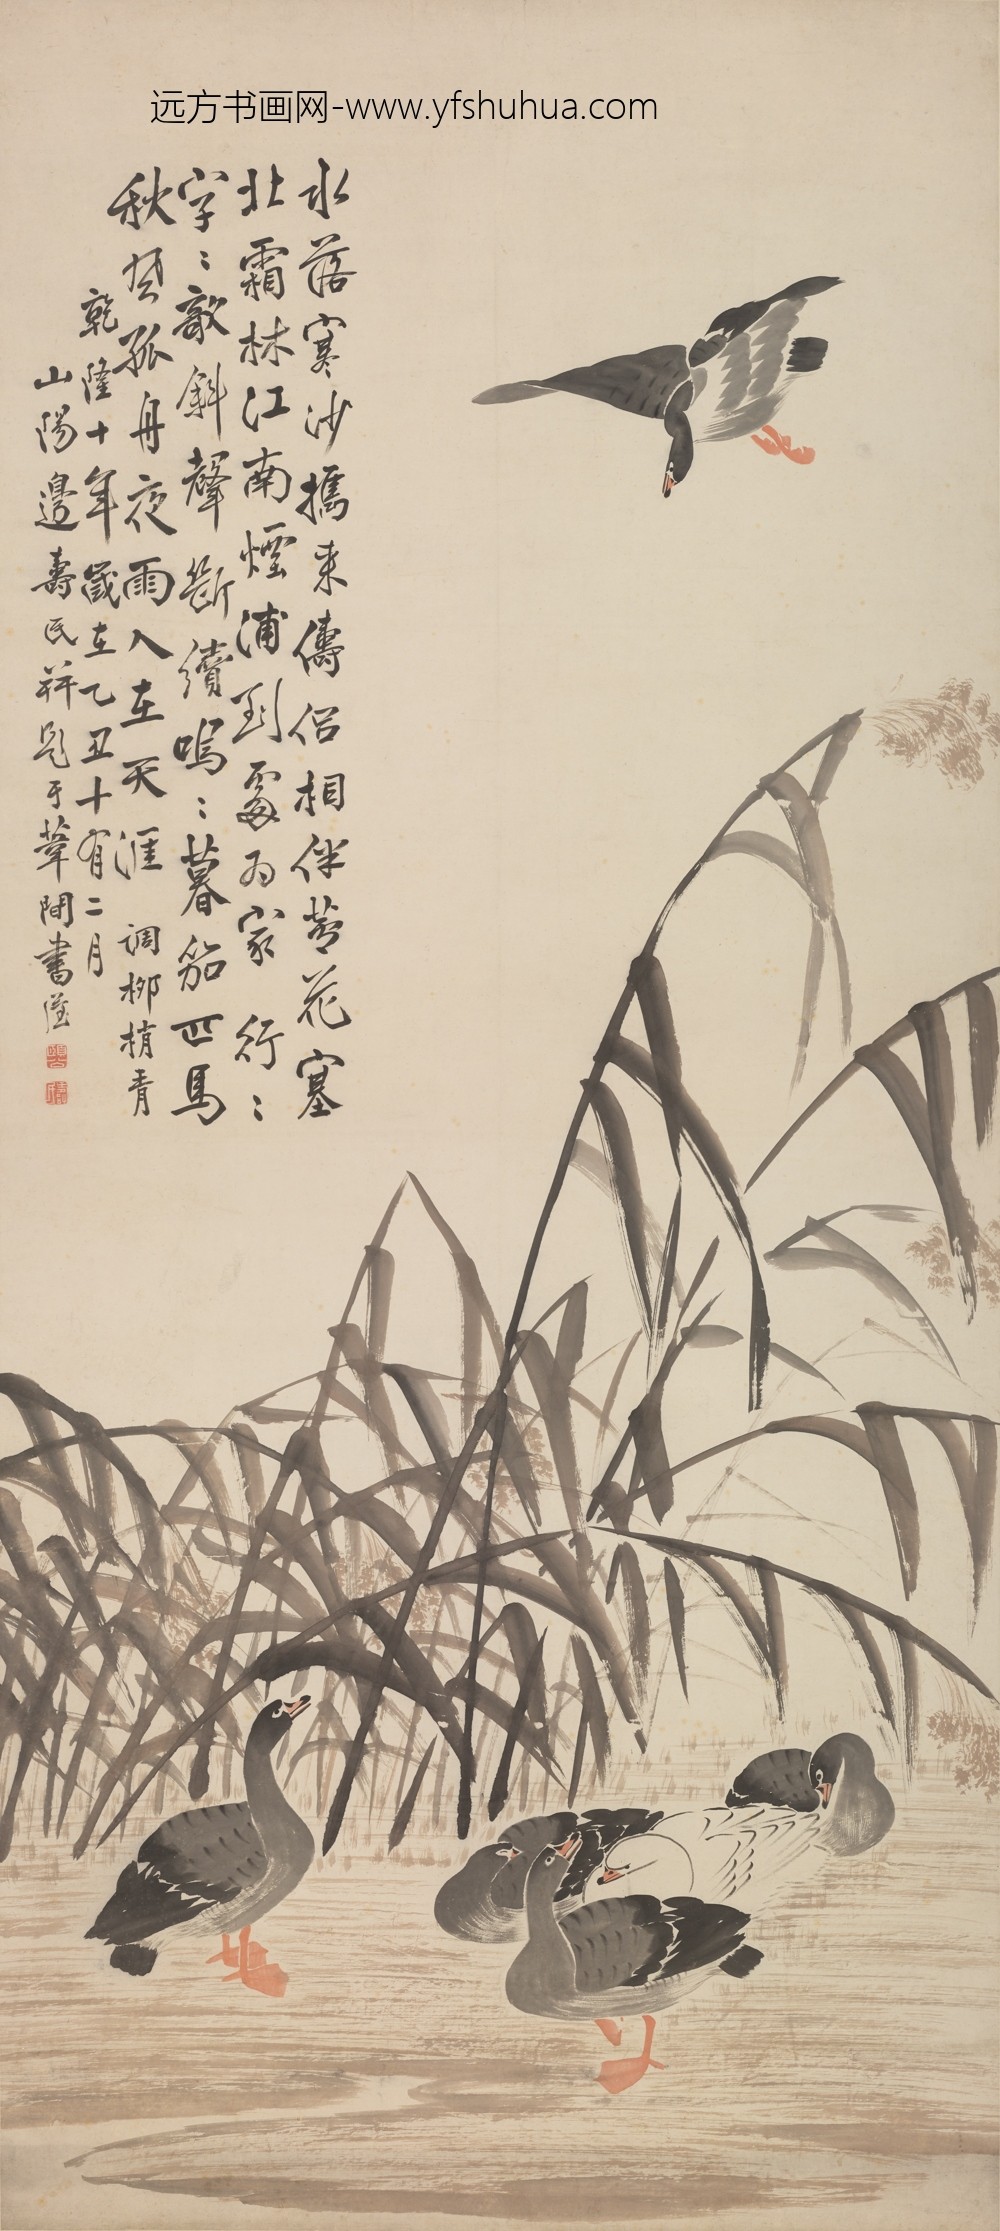 远方书画网-www.yfshuhua.com
水落寒沙携来俦侣相伴芦花塞
北霜林江南烟浦到处为家行〻
字〻敧斜聲斷續嗚〻暮笳匹馬
秋
孤舟夜雨人在天涯 调柳梢青
乾隆十年歲在乙丑十有二月
山陽邊壽民并題于葦間書屋